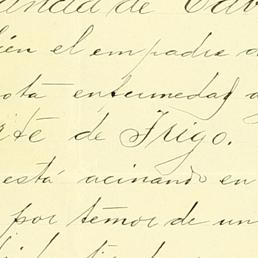 de
én el empadre
ota enfermedad
te de Trigo.
está acinando en
por temor de un